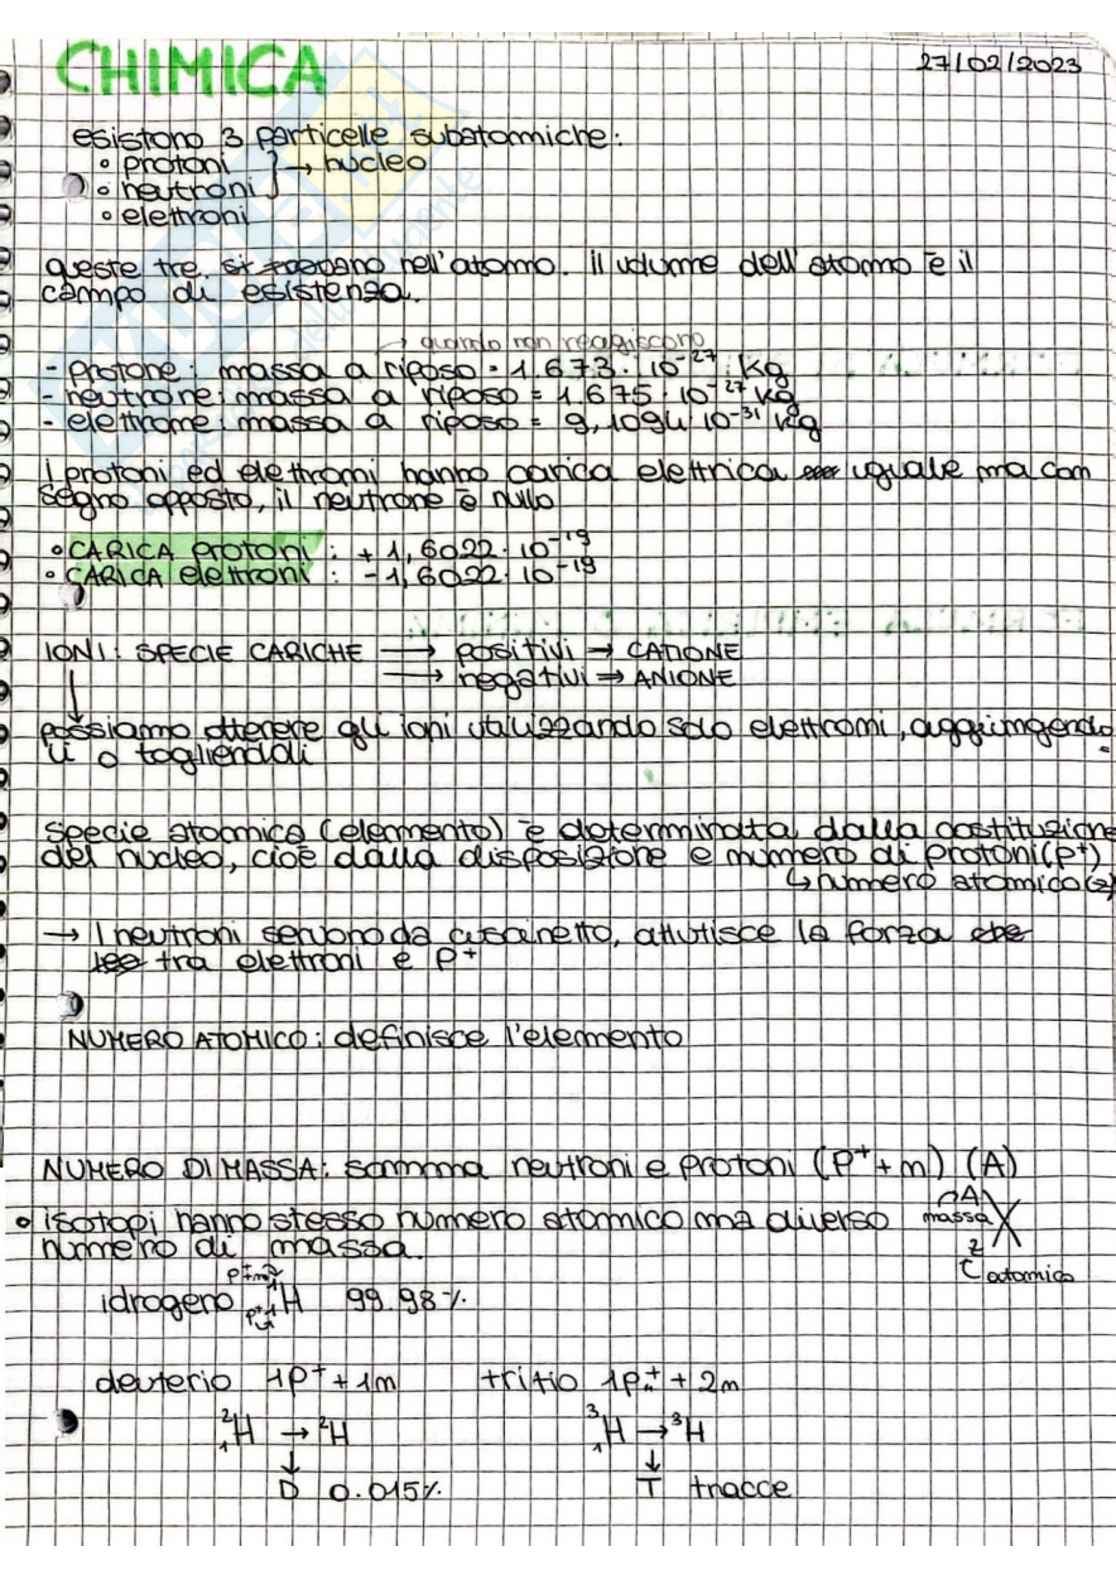 CHIMICA
27/02/2023
esistono 3 particelle subatomiche:
• protoni
• neutroni
} → nucleo
• elettroni
queste tre si trovano nell'atomo. il volume dell'atomo è il
campo di esistenza.
→ quando non reagiscono
- Protone: massa a riposo = 1.673 · 10⁻²⁷ kg
- neutrone: massa a riposo = 1.675 · 10⁻²⁷ kg
- elettrone: massa a riposo = 9,1094 10⁻³¹ kg
I protoni ed elettroni hanno carica elettrica uguale ma con
segno opposto, il neutrone è nullo
• CARICA protoni : + 1,6022 · 10⁻¹⁹
• CARICA elettroni : - 1,6022 · 10⁻¹⁹
IONI: SPECIE CARICHE → positivi → CATIONE
→ negativi ⇒ ANIONE
↓
possiamo ottenere gli ioni utilizzando solo elettroni, aggiungendo
li o togliendoli
Specie atomica (elemento) è determinata dalla costituzione
del nucleo, cioè dalla disposizione e numero di protoni (p⁺)
↳ numero atomico (z)
→ I neutroni servono da cuscinetto, attutisce la forza
tra elettroni e p⁺
NUMERO ATOMICO: definisce l'elemento
NUMERO DI MASSA: somma neutroni e protoni (p⁺ + n) (A)
• isotopi hanno stesso numero atomico ma diverso
numero di massa.
A
massa X
z
atomico
p⁺+n
idrogeno ¹₁H 99.98%
p⁺
deuterio 1p⁺ + 1n tritio 1p⁺ + 2n
²₁H → ²H ³₁H → ³H
↓ ↓
D 0.015% T tracce